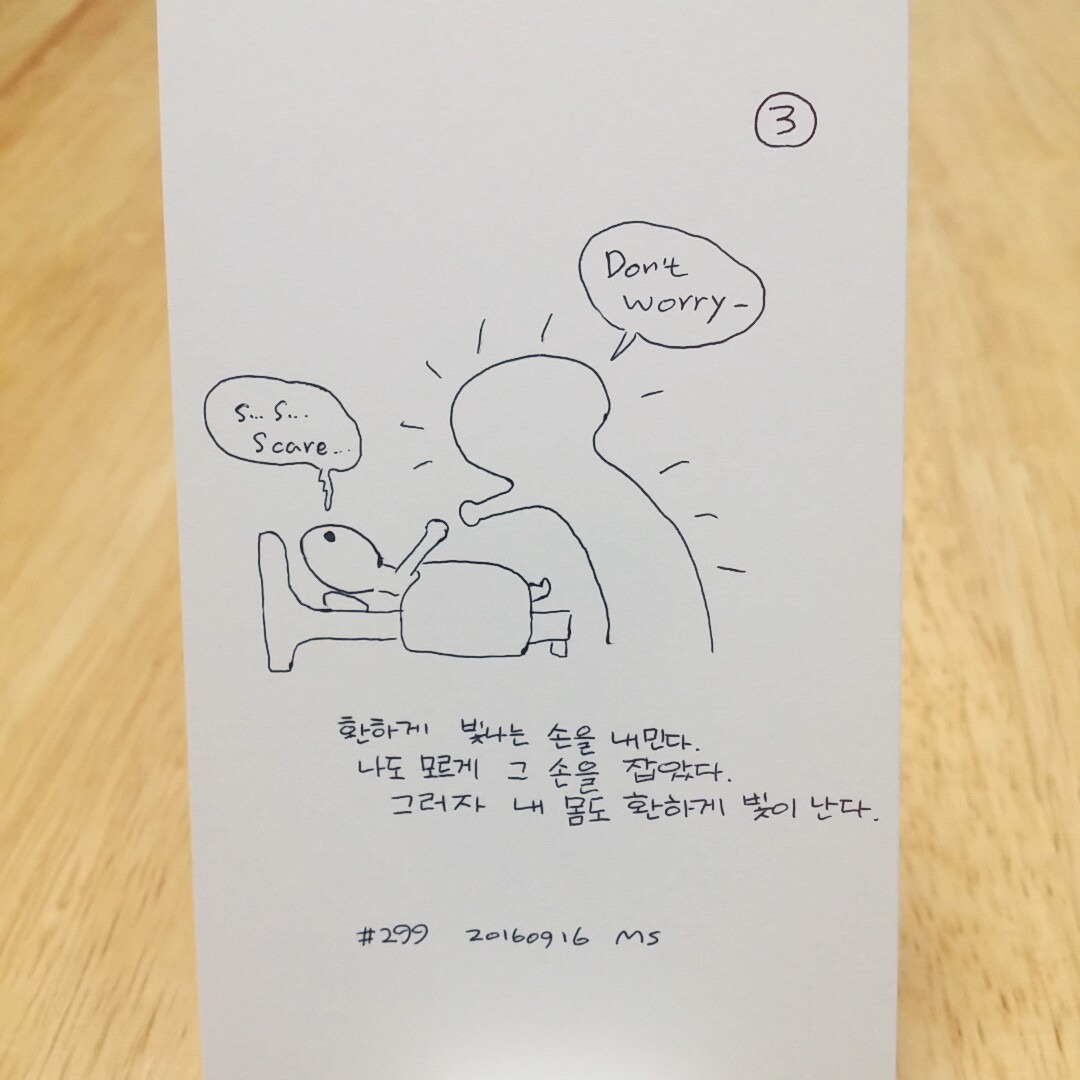 3
Don't
worry-
S... S...
Scare...
환하게 빛나는 손을 내민다.
나도 모르게 그 손을 잡았다.
그러자 내 몸도 환하게 빛이 난다.
#299 20160916 MS